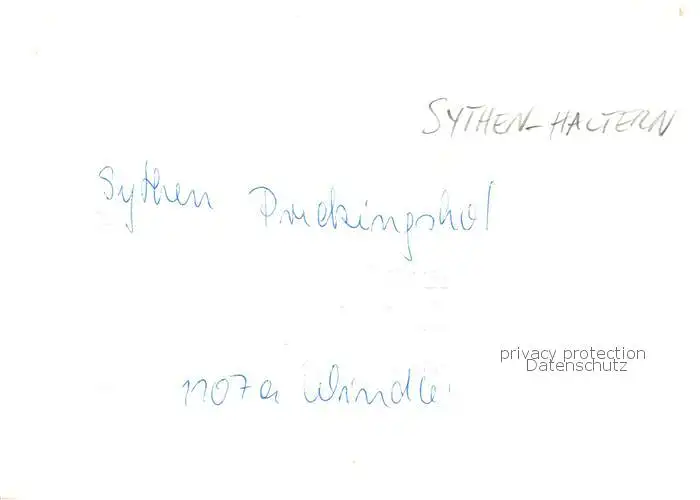 SYTHEN-HALTERN
Sythen Pruckingshof
privacy protection
Datenschutz
1107a Windle